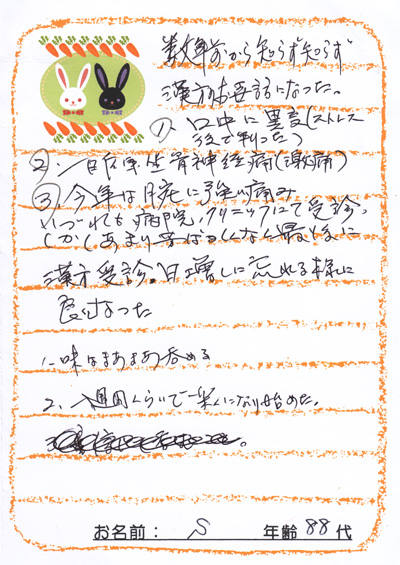 数年前から知らず知らず
漢方お世話になった。
①口中に異変(ストレス
後で判った)
②昨年坐骨神経痛(激痛)
③今年は月症に強い痛み
いづれも病院,クリニックにて受診,
しかしあまり芳ばしくなく最後に
漢方受診。日増しに忘れる様に
良くなった
1、味はまあまあ呑める
2、1週間くらいで楽になり始めた。
お名前: S 年齢 88代